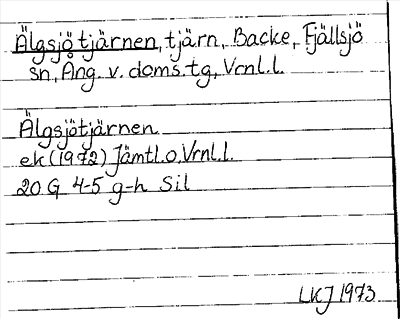 Älgsjötjärnen, tjärn, Backe, Fjällsjö
sn, Ång. v. doms.tg, Vrnl.l.
Älgsjötjärnen
ek (1972) Jämtl.o.Vrnl.l.
20 G 4-5 g-h Sil
LKJ 1973